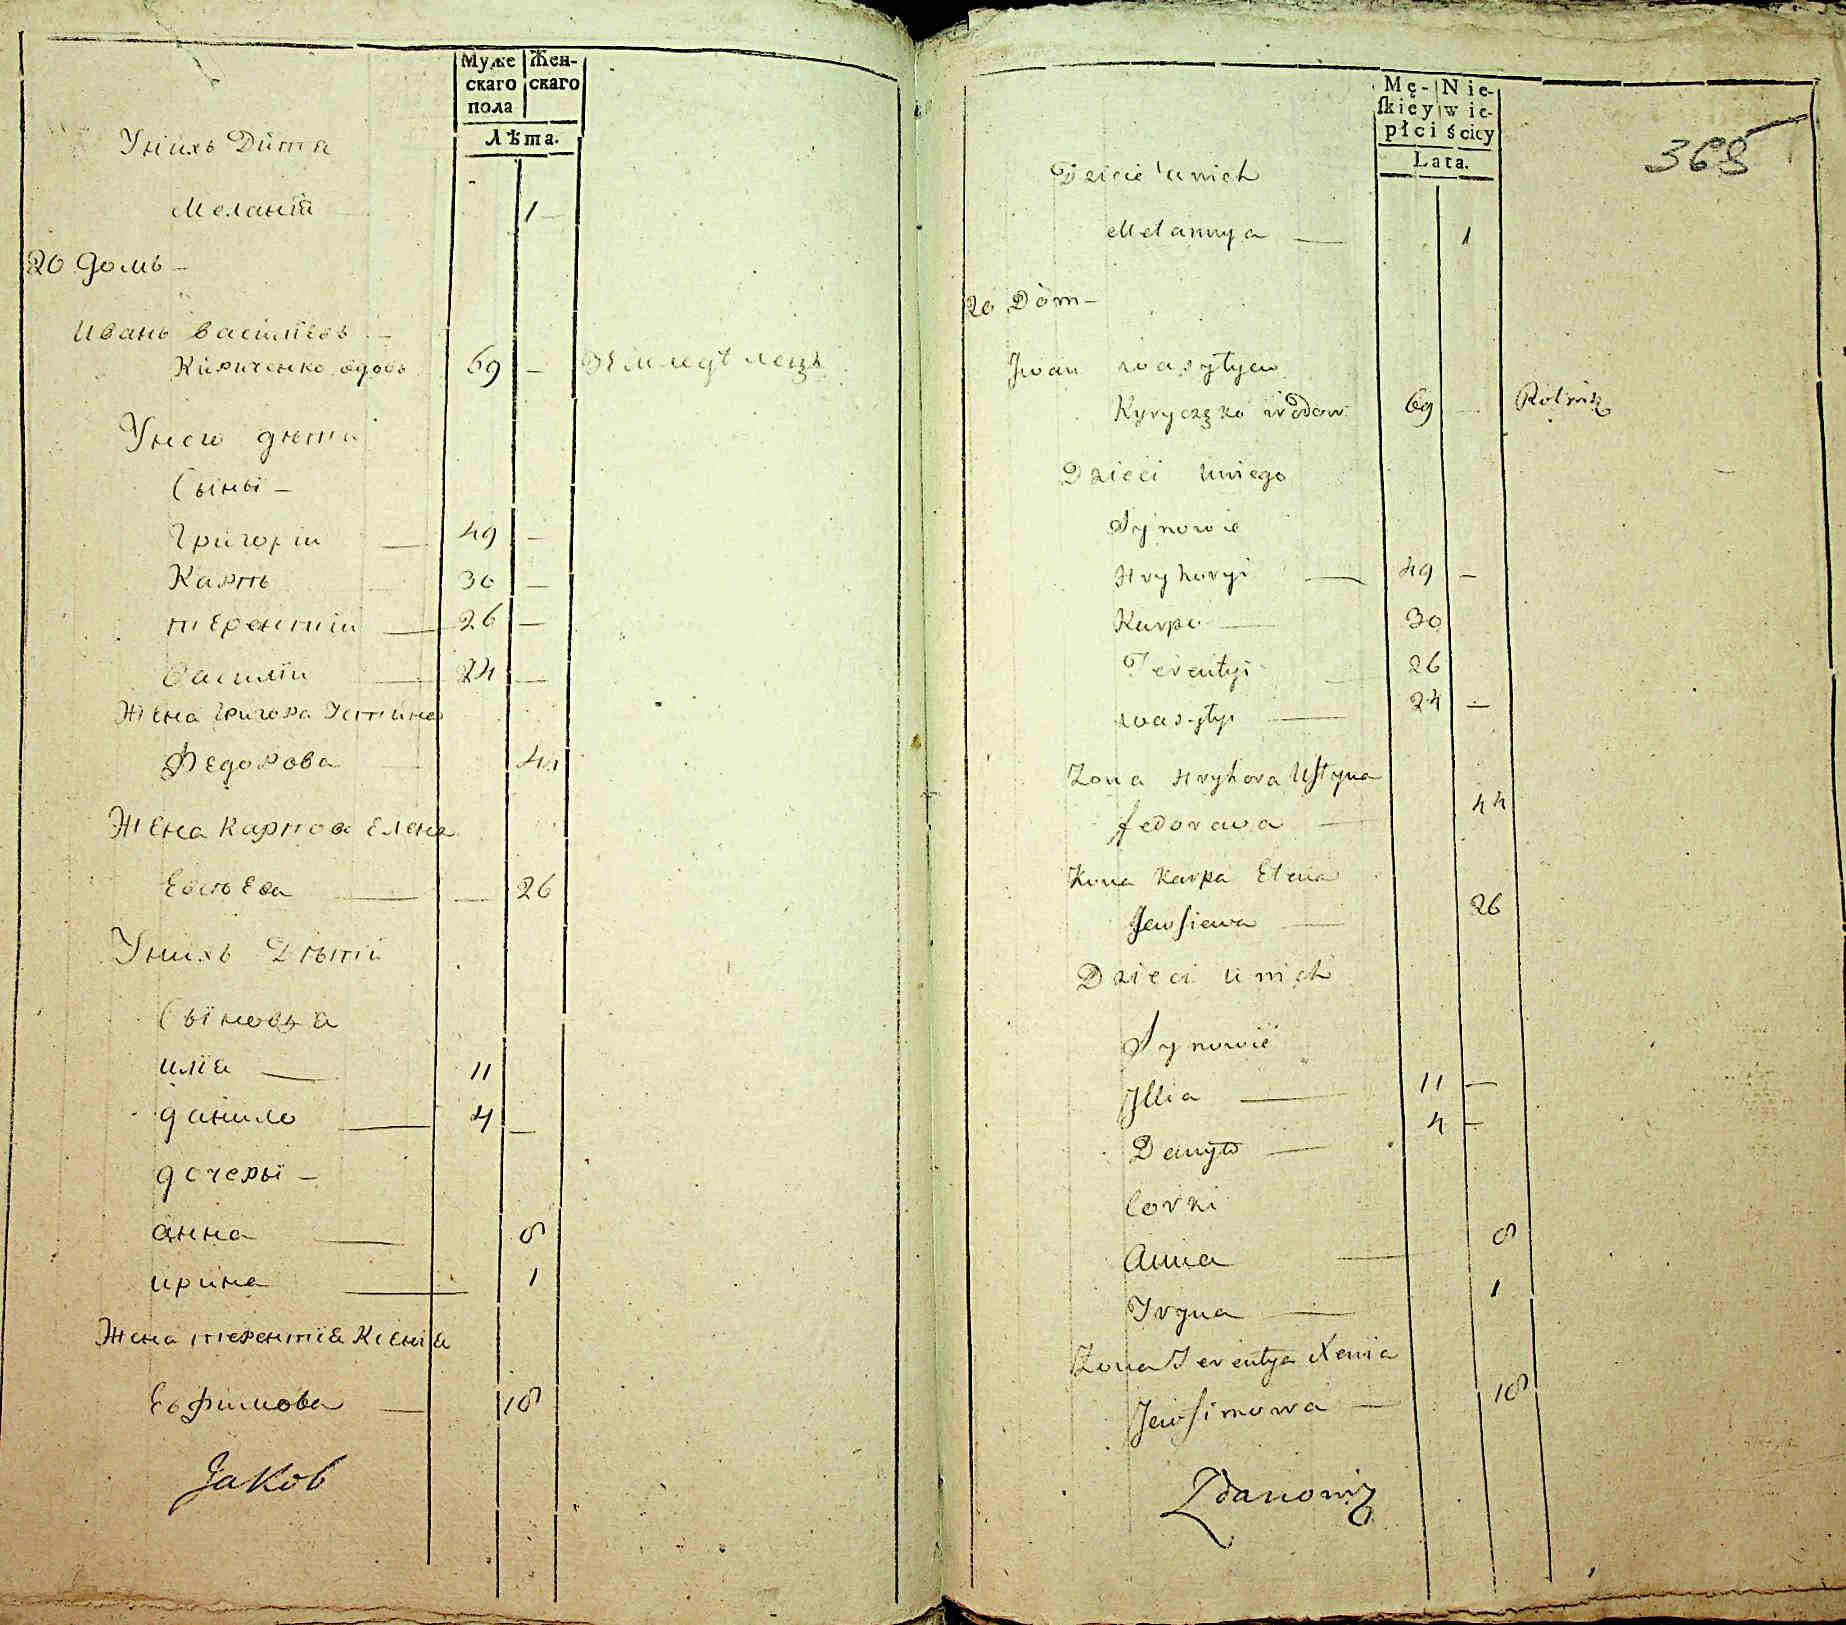 Муже Жен-
скаго скаго
пола
Лѣта.
Унихъ Дитя
Меланія 1
20 домъ
Иванъ Василіевъ
Кириченко вдовъ 69 – Земледѣлецъ
Унего дѣти
Сыны
Григорій 49 –
Карпъ 30 –
Терентій 26 –
Василій 24 –
Жена Григора Устина
Федорова 44
Жена Карпова Елена
Евсѣева – 26
Унихъ Дѣти
Сыновья
илія 11
данило 4 –
дочеры
анна 8
ирина 1
Жена терентія Ксенія
Ефимова 18
Jakob
Mę- Nie-
ſkiey wie-
płci ściey
Lata.
368
Dziecie unich
Melannya 1
20 Dòm
Jwan Wasylyew
Kyryczęko wdow 69 – Rolnik
Dzieci Uniego
Synowie
Hryhoryi 49 –
Karpo 30
Terentyi 26
Wasylyi 24 –
Zona Hryhora Uſtyna
fedorowa 44
Zona Karpa Elena
Jewſiewa 26
Dzieci Unich
Synowie
Jllia 11 –
Danyło 4 –
Corki
Anna 8
Iryna 1
Zona Terentya Xenia
Jewfimowa 18
Zdanowicz